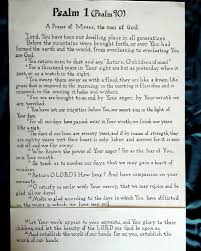 Psalm 1 (Psalm 90)
A Prayer of Moses, the man of God
Lord, You have been our dwelling place in all generations.
Before the mountains were brought forth, or ever You had
formed the earth and the world, from everlasting to everlasting You
are God.
You return man to dust and say, "Return, O children of man!"
For a thousand years in Your sight are but as yesterday when it is
past, or as a watch in the night.
You sweep them away as with a flood; they are like a dream, like
grass that is renewed in the morning: in the morning it flourishes and is
renewed; in the evening it fades and withers.
For we are brought to an end by Your anger; by Your wrath we
are terrified.
You have set our iniquities before You, our secret sins in the light
of Your presence.
For all our days pass away under Your wrath; we finish our years
like a sigh.
The days of our lives are seventy years, and if by reason of strength, they
are eighty years; yet their is only labor and sorrow; it is soon
cut off and we fly away.
Who knows the power of Your anger? For as the fear of You, so
is Your wrath.
So teach us to number our days that we may gain a heart of
wisdom.
Return, O LORD! How long? And have compassion on your
servants.
satisfy us early with Your mercy, that we may rejoice and be
glad all our days!
Make us glad according to the days in which You have afflicted
us, the years in which we have seen evil.
Let Your work appear to Your servants, and Your glory to their
children, and let the beauty of the LORD our God be upon us.